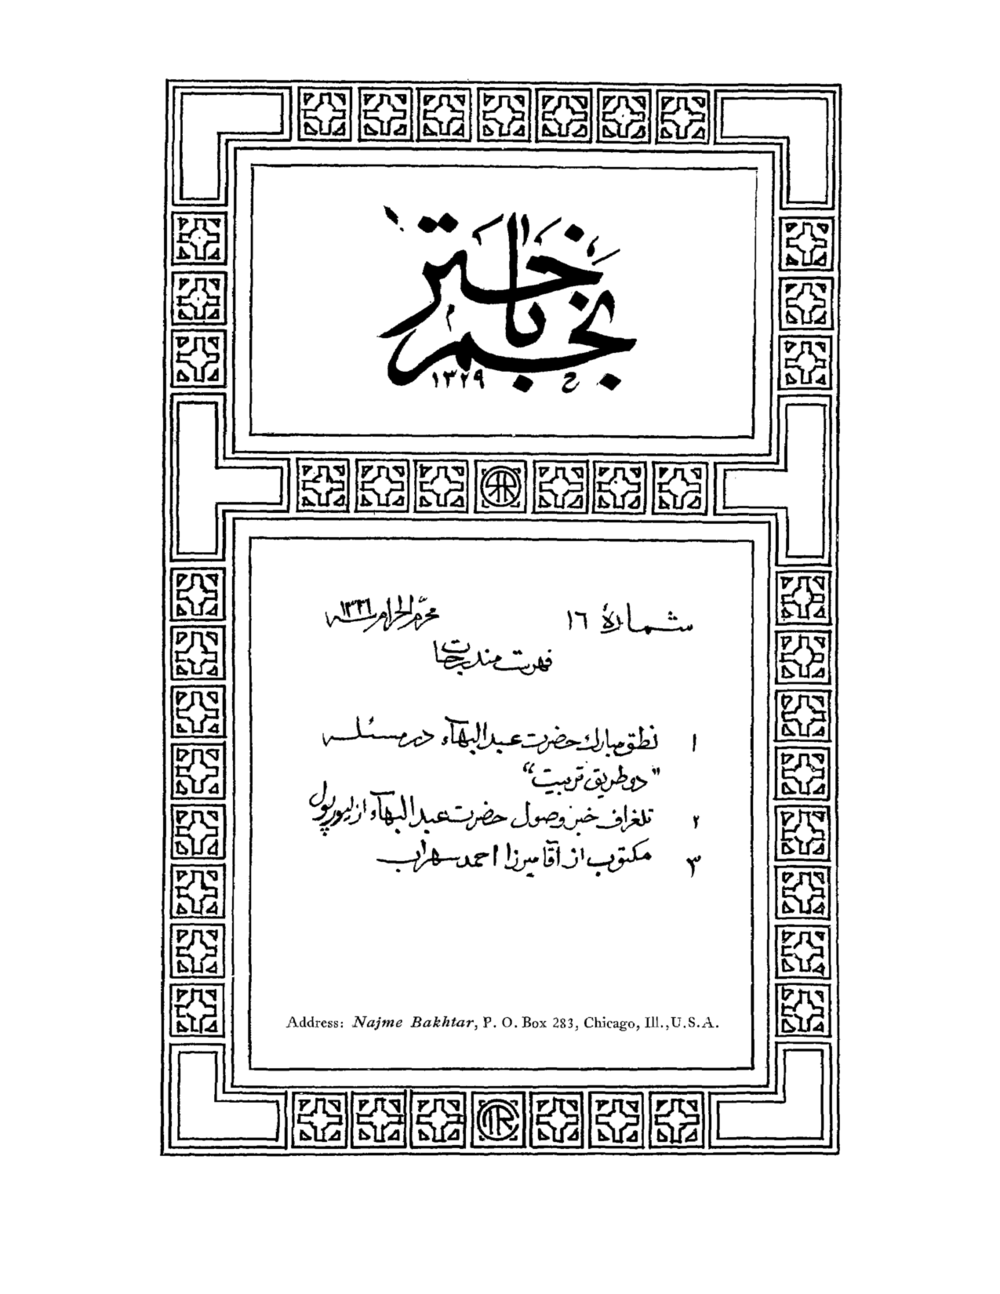 نجم باختر
ح ١٣٢٩
شمارهٔ ١٦ محرّم الحرام سنه ١٣٣١
فهرست مندرجات
١ نطق مبارك حضرت عبدالبهآء در مسئله
"دو طریق تربیت"
٢ تلغراف خبر وصول حضرت عبدالبهآء از لیورپول
٣ مكتوب از آقا میرزا احمد سهراب
Address: Najme Bakhtar, P. O. Box 283, Chicago, Ill.,U.S.A.